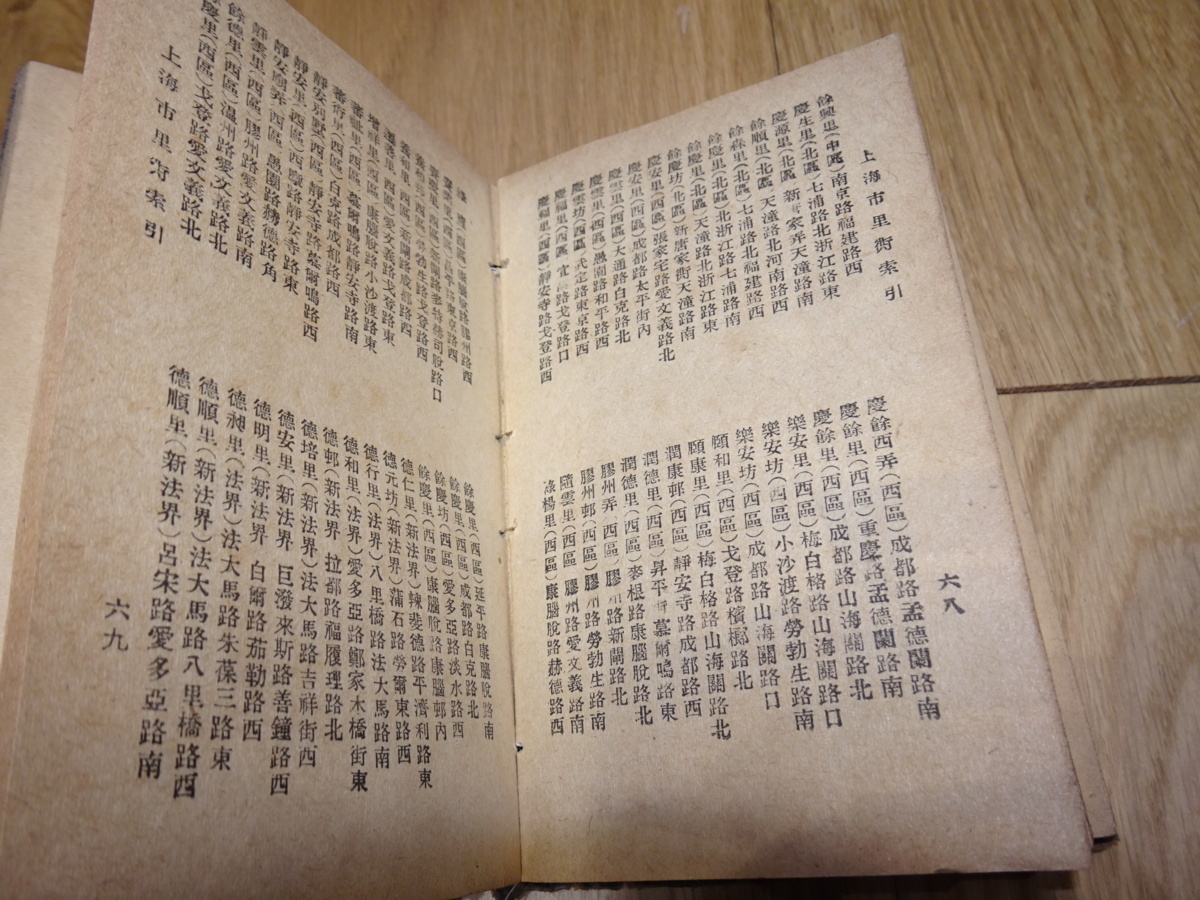 上海市里衖索引
餘興里(中區)南京路福建路西
慶生里(北區)七浦路北浙江路東
慶源里(北區)新衖家弄天潼路南
餘順里(北區)天潼路北河南路西
餘森里(北區)七浦路北福建路西
餘慶里(北區)北浙江路七浦路南
餘慶里(北區)天潼路北浙江路東
餘慶坊(北區)新唐家衖天潼路南
慶安里(西區)張家宅路愛文義路北
慶安里(西區)成都路太平街內
慶雲里(西區)大通路白克路北
慶雲里(西區)愚園路和平路西
慶雲坊(西區)武定路東京路西
慶福里(西區)宜昌路戈登路口
慶福里(西區)靜安寺路戈登路西
慶餘西弄(西區)成都路孟德蘭路南
慶餘里(西區)重慶路孟德蘭路南
慶餘里(西區)成都路山海關路北
樂安里(西區)梅白格路山海關路口
樂安坊(西區)小沙渡路勞勃生路南
樂安坊(西區)成都路山海關路口
頤和里(西區)戈登路檳榔路北
頤康里(西區)梅白格路山海關路北
潤康邨(西區)靜安寺路成都路西
潤德里(西區)昇平街慕爾鳴路東
潤德里(西區)麥根路康腦脫路北
膠州弄(西區)膠州路新閘路北
膠州邨(西區)膠州路勞勃生路南
隨雲里(西區)膠州路愛文義路南
淥楊里(西區)康腦脫路赫德路西
六八
蕃祉里(西區)慕爾鳴路靜安寺路南
蕃衍里(西區)白克路成都路西
靜安別墅(西區)靜安寺路慕爾鳴路西
靜安里(西區)西摩路靜安寺路東
靜安廟弄(西區)愚園路赫德路角
靜雲里(西區)膠州路愛文義路南
餘德里(西區)溫州路愛文義路北
餘慶里(西區)戈登路愛文義路北
上海市里衖索引
餘慶里(西區)延平路康腦脫路南
餘慶里(西區)成都路白克路北
餘慶坊(西區)愛多亞路淡水路西
餘慶里(西區)康腦脫路康腦邨內
德仁里(新法界)辣斐德路平濟利路東
德元坊(新法界)蒲石路勞爾東路西
德行里(法界)八里橋路法大馬路南
德和里(法界)愛多亞路鄭家木橋街東
德邨(新法界)拉都路福履理路北
德培里(新法界)法大馬路吉祥街西
德安里(新法界)巨潑來斯路善鐘路西
德明里(新法界)白爾路茄勒路西
德昶里(法界)法大馬路朱葆三路東
德順里(新法界)法大馬路八里橋路西
德順里(新法界)呂宋路愛多亞路南
六九